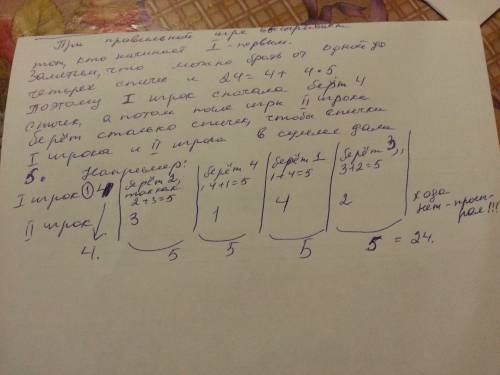 При правильной игре выигрывает
тот, кто начинает I - первым.
Заметим, что можно брать от одной до
четырех спичек и 24 = 4 + 4·5
Поэтому I игрок сначала берёт 4
спичек, а потом после игры II игрока
берёт столько спичек, чтобы спички
I игрока и II игрока в сумме дали
5. Например:
I игрок ① 4 | берёт 2, так как 2+3=5 | берёт 4, 4+1=5 | берёт 1, 1+4=5 | берёт 3, 3+2=5 |
II игрок 3 1 4 2 хода нет - проиграл!!!
4. 5 5 5 5 = 24.